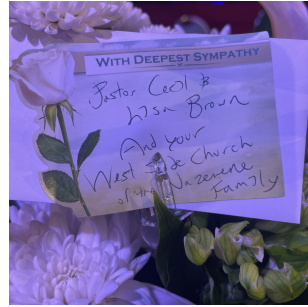 WITH DEEPEST SYMPATHY
Pastor Cecil &
Lisa Brown
And your
West Side Church
of the Nazerene
Family